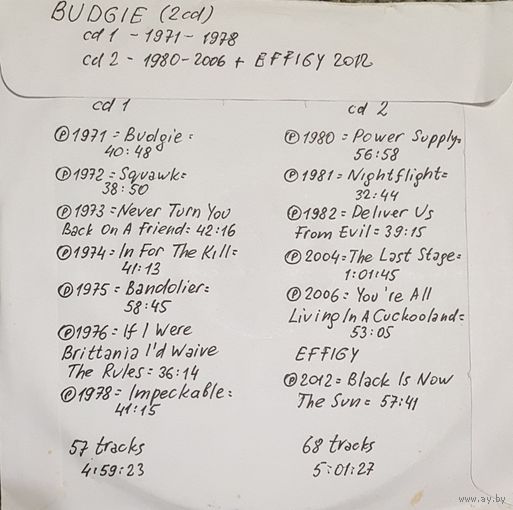 BUDGIE (2cd)
cd 1 - 1971 - 1978
cd 2 - 1980-2006 + EFFIGY 2012
cd 1
Ⓟ1971 = Budgie =
40:48
Ⓟ1972 = Squawk=
38:50
Ⓟ1973 = Never Turn You
Back On A Friend= 42:16
Ⓟ1974 = In For The Kill=
41:13
Ⓟ1975 = Bandolier=
58:45
Ⓟ1976 = If I Were
Brittania I'd Waive
The Rules = 36:14
Ⓟ1978 = Impeckable=
41:15
57 tracks
4:59:23
cd 2
Ⓟ1980 = Power Supply=
56:58
Ⓟ1981 = Nightflight=
32:44
Ⓟ1982 = Deliver Us
From Evil = 39:15
Ⓟ2004 = The Last Stage=
1:01:45
Ⓟ2006 = You're All
Living In A Cuckooland=
53:05
EFFIGY
Ⓟ2012 = Black Is Now
The Sun = 57:41
68 tracks
5:01:27
www.ay.by